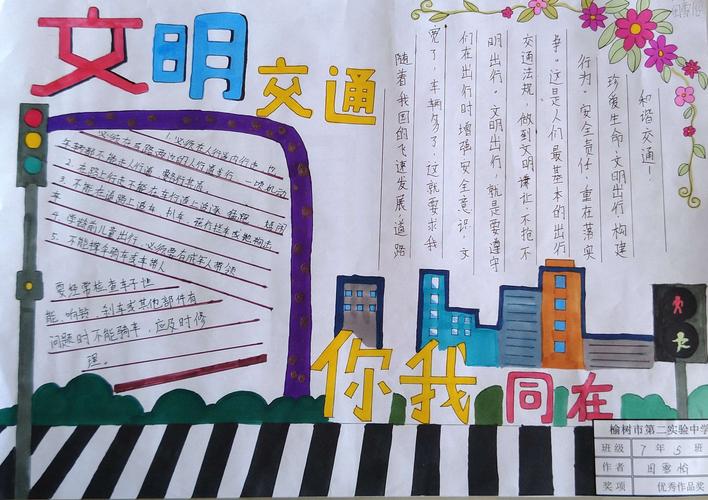 文明
交通
1.必须在人行道内行走,也
3.不能在道路上追车、扒车、
4.学龄前儿童出行,必须要有成年人带领
5.不能撑伞骑车或车带人
要经常检查车子性
能,响铃、刹车或其他部件有
问题时不能骑车,应及时修
理。
随着我国的飞速发展,道路
宽了,车辆多了,这就要求我
们在出行时增强安全意识,文
明出行。文明出行,就是要遵守
交通法规,做到文明礼让,不抢不
争。这是人们最基本的出行
行为。安全责任,重在落实
珍爱生命,文明出行,构建
和谐交通!
你我
同在
榆树市第二实验中学
班级 7年5班
作者 周雪怡
奖项 优秀作品奖